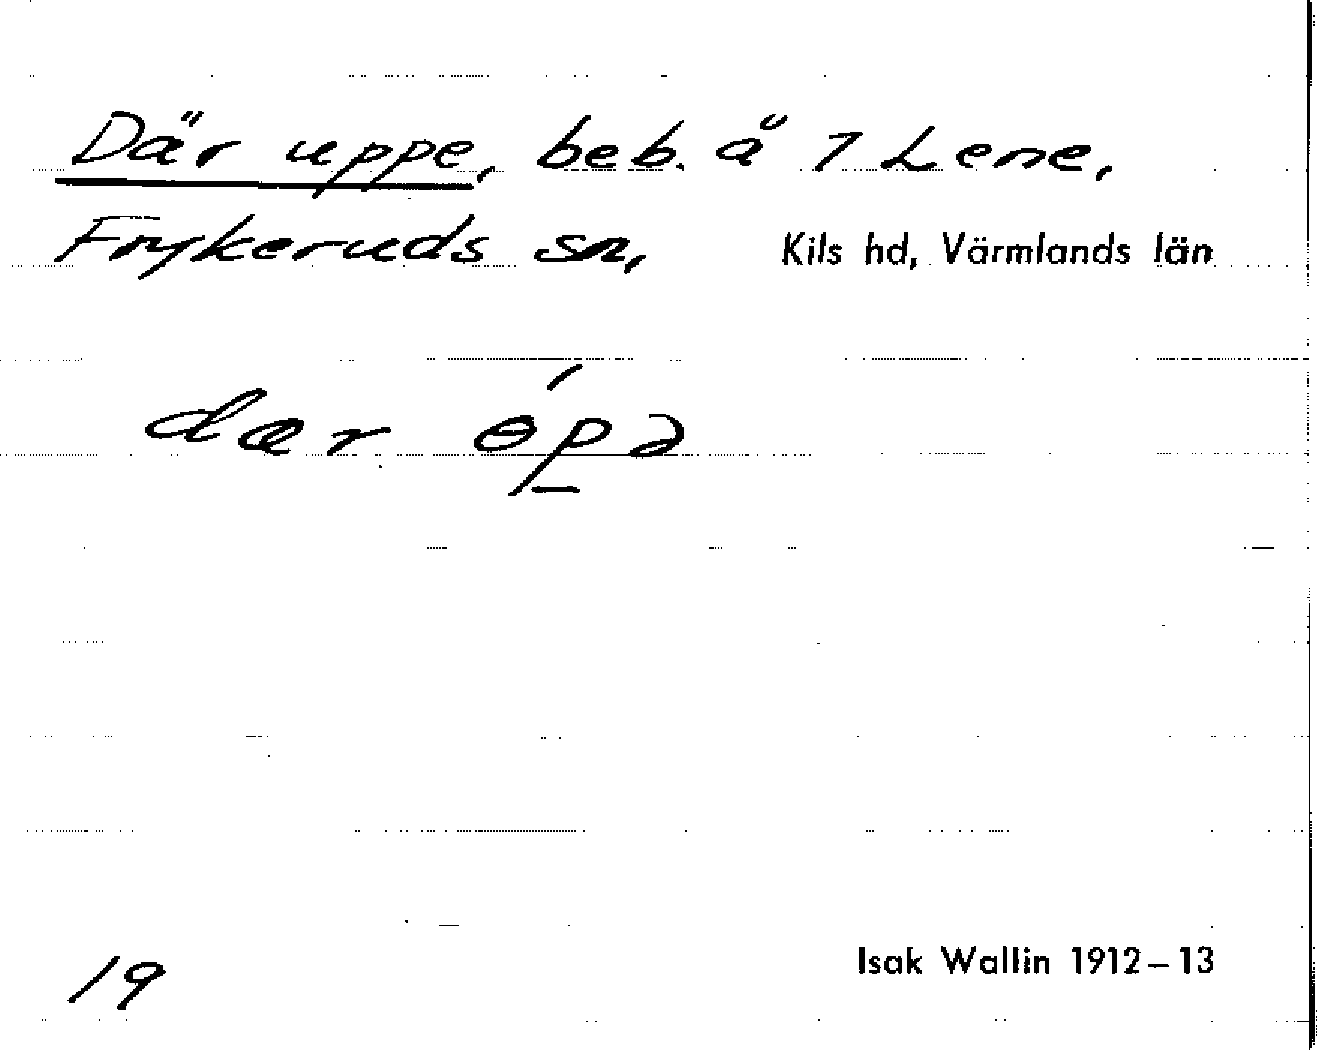 Där uppe, beb. å 1 Lene,
Frykeruds sn, Kils hd, Värmlands län
dær ɵ́p̲ə
19
Isak Wallin 1912–13